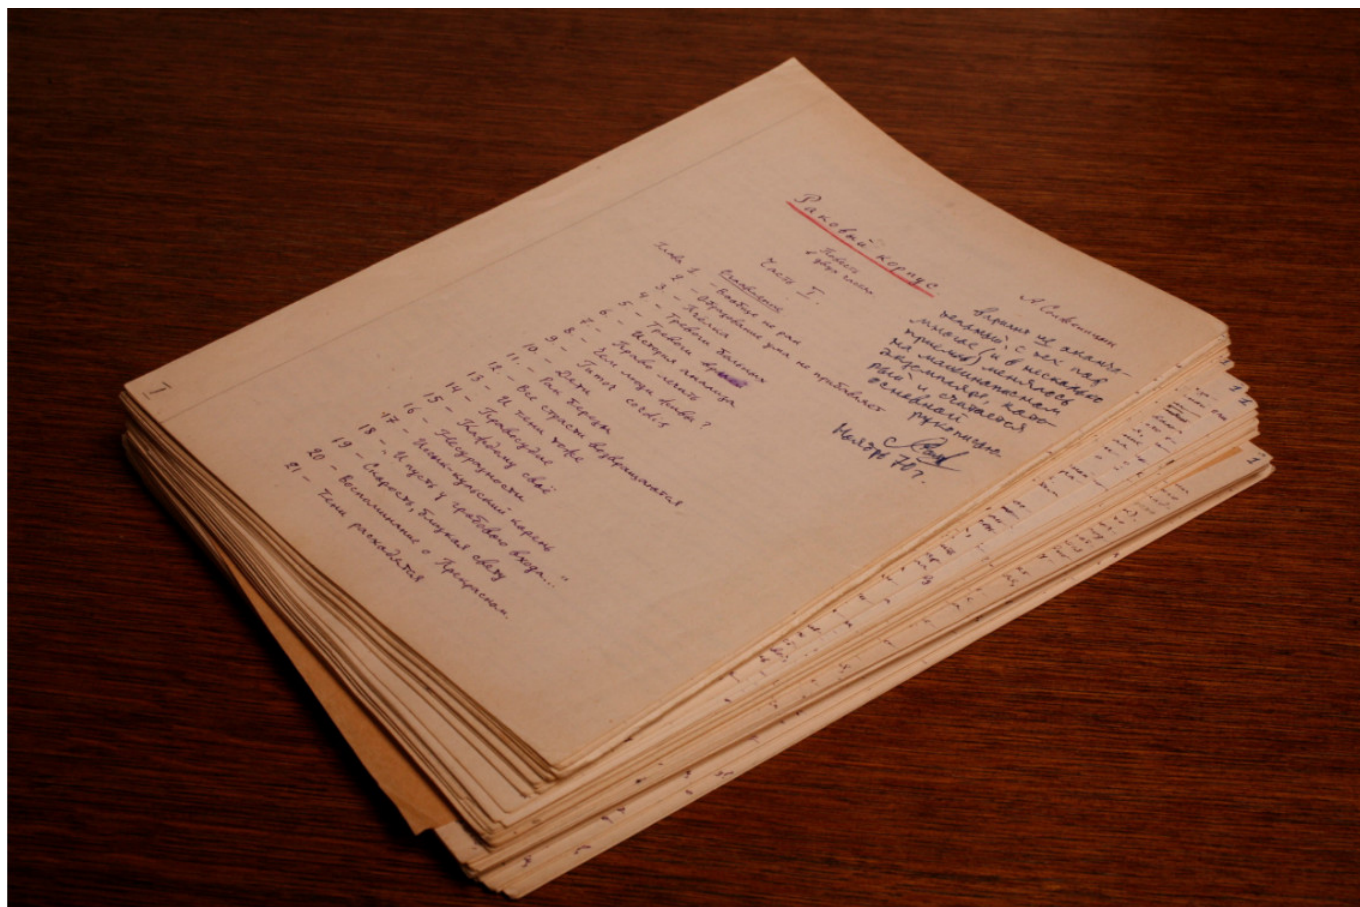 А. Солженицын
Раковый корпус
Повесть
в двух частях
Часть I.
Оглавление
Глава 1 - Вообще не рак
2 - Образование ума не прибавляет
3 - Пчёлка
4 - Тревоги больных
5 - Тревоги врачей
6 - История анализа
7 - Право лечить
8 - Чем люди живы?
9 - Tumor cordis
10 - Дети
11 - Рак берёзы
12 - Все страсти возвращаются
13 - И тени тоже
14 - Правосудие
15 - Каждому своё
16 - Несуразности
17 - Иссык-кульский корень
18 - „И пусть у гробового входа..."
19 - Скорость, близкая свету
20 - Воспоминание о Прекрасном.
21 - Тени расходятся
Вариант не оконча-
тельный, с тех пор
многое (и в несколько
приёмов) менялось
на машинописном
экземпляре, кото-
рый и считается
основной
рукописью
Ноябрь 70 г.
1